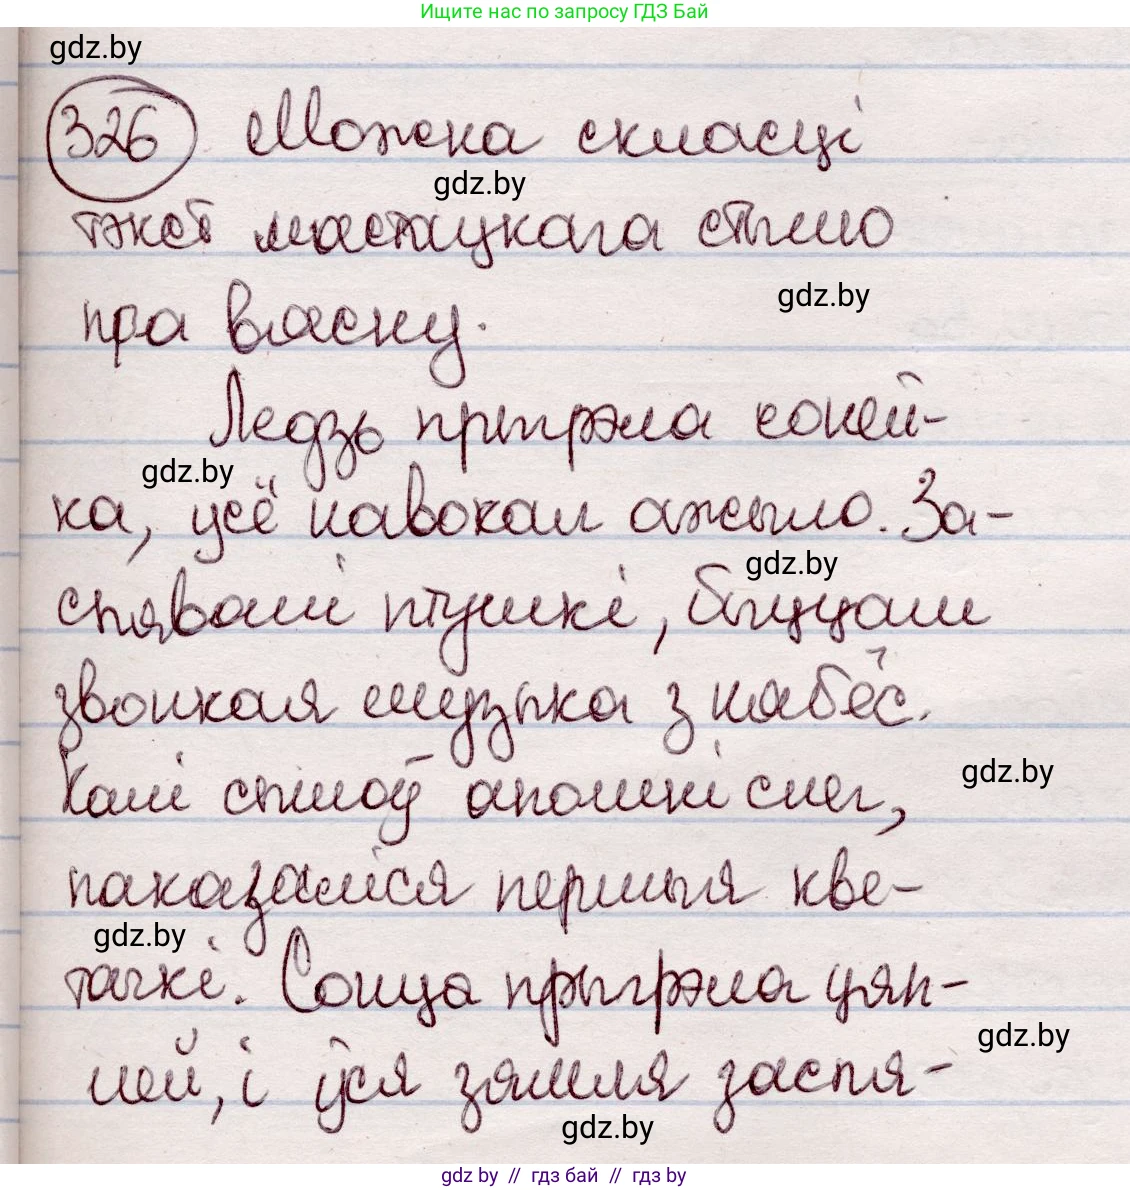 Ищите нас по запросу ГДЗ Бай
gdz.by
326 Можна скласці
gdz.by
тэкст мастацкага стылю
gdz.by
пра вясну.
Ледзь прыгрэла соней-
gdz.by
ка, усё навокал ажыло. За-
gdz.by
спявалі птушкі, быццам
звонкая музыка з нябёс.
Калі сплыў апошні снег,
gdz.by
паказаліся першыя кве-
gdz.by
тачкі. Сонца прыгрэла цяп-
gdz.by
лей, і ўся зямля заспя-
gdz.by
gdz by // гдз бай // гдз by